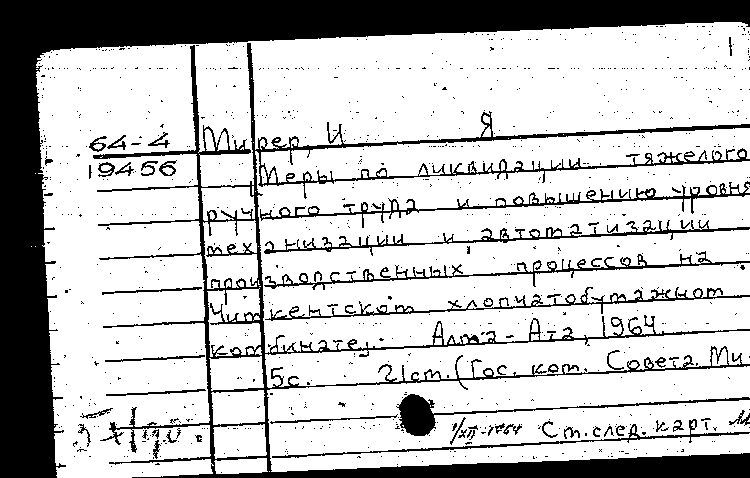 1
64-4 Мирер, И Я
19456 Меры по ликвидации тяжелого
ручного труда и повышению уровня
механизации и автоматизации
производственных процессов на
Чимкентском хлопчатобумажном
комбинате. Алма-Ата, 1964.
5с. 21см. (Гос. ком. Совета Ми-
1/XII-1964 Ст. след. карт.